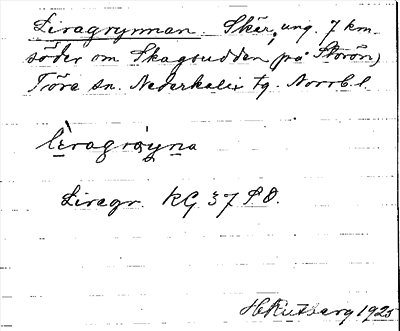 Liragrynnan. Skär, ung. 7 km.
söder om Skagsudden på Storön,
Töre sn. Nederkalix tg. Norrb. l.
lìragrøyna
Liragr. KG 37 S.O.
H Rutberg 1925